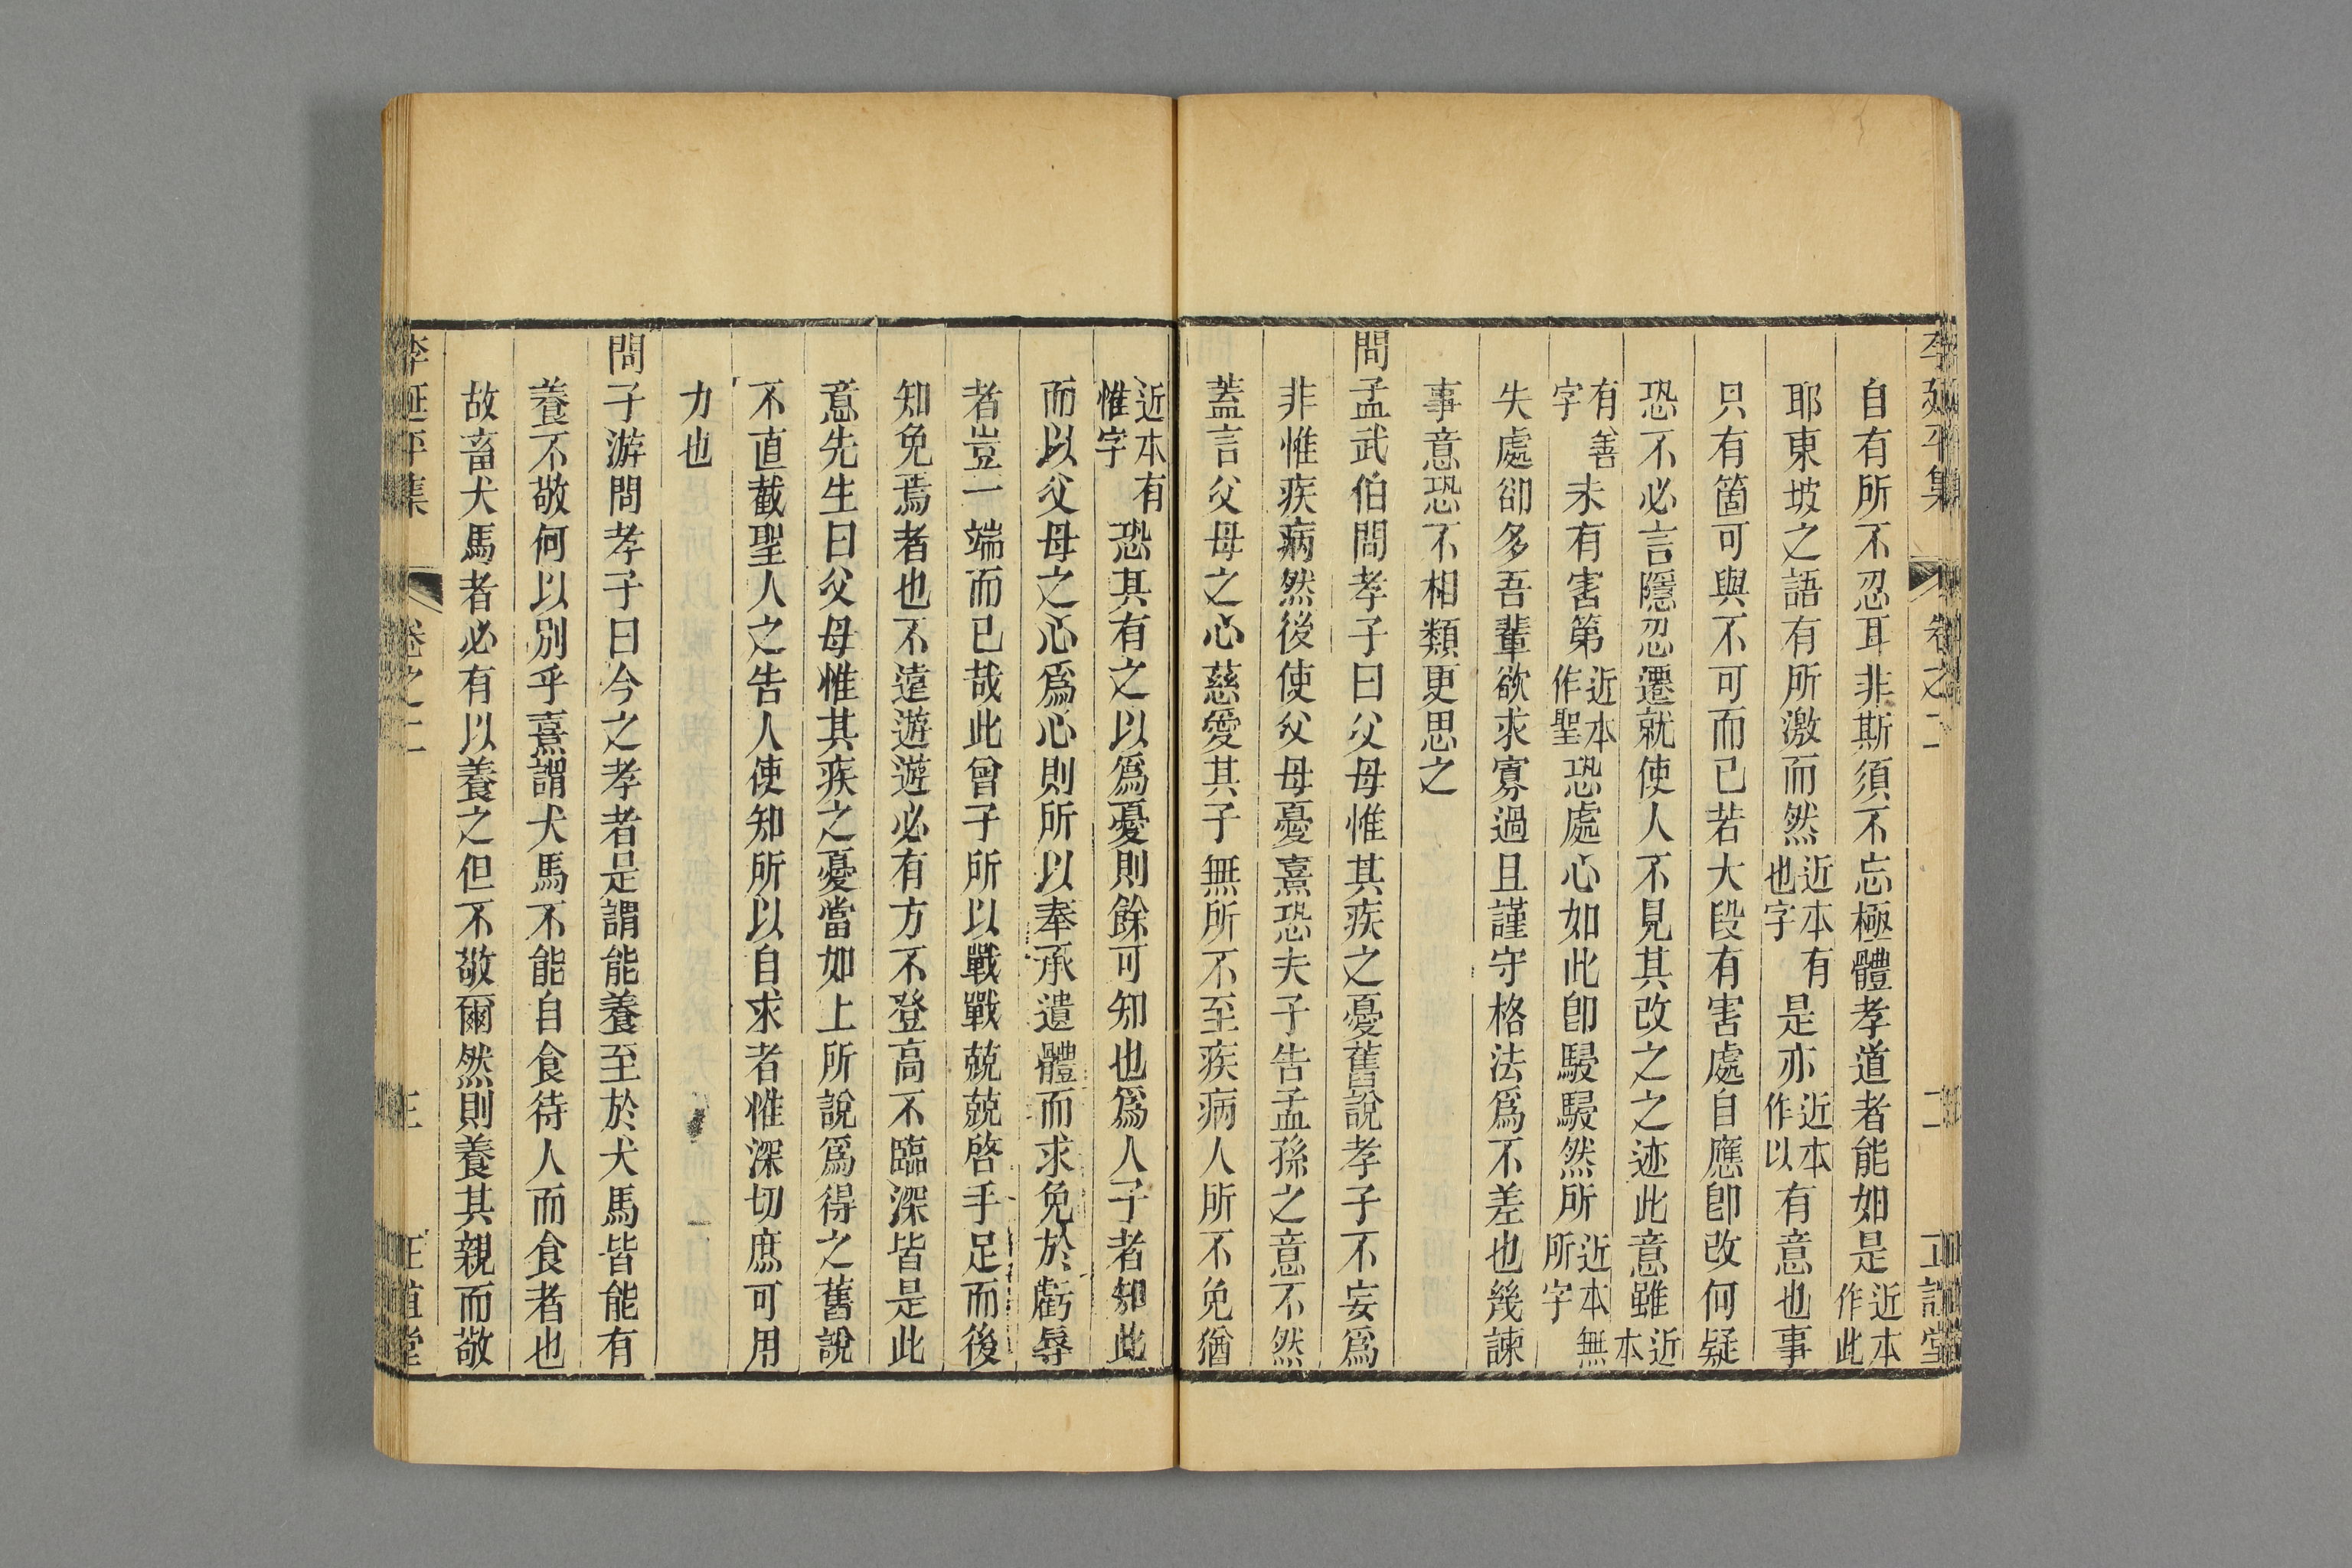 李延平集 卷之二 二 正誼堂
自有所不忍耳非斯須不忘極體孝道者能如是近本作此
耶東坡之語有所激而然近本有也字是亦近本作以有意也事
只有箇可與不可而已若大段有害處自應卽改何疑
恐不必言隱忍遷就使人不見其改之之迹此意雖近本
有善字未有害第近本作聖恐處心如此卽駸駸然所近本無所字
失處卻多吾輩欲求寡過且謹守格法爲不差也幾諫
事意恐不相類更思之
問孟武伯問孝子曰父母惟其疾之憂舊說孝子不妄爲
非惟疾病然後使父母憂熹恐夫子告孟孫之意不然
蓋言父母之心慈愛其子無所不至疾病人所不免猶
近本有惟字恐其有之以爲憂則餘可知也爲人子者知此
而以父母之心爲心則所以奉承遺體而求免於虧辱
者豈一端而已哉此曾子所以戰戰兢兢啓手足而後
知免焉者也不遠遊遊必有方不登高不臨深皆是此
意先生曰父母惟其疾之憂當如上所說爲得之舊說
不直截聖人之告人使知所以自求者惟深切庶可用
力也
問子游問孝子曰今之孝者是謂能養至於犬馬皆能有
養不敬何以別乎熹謂犬馬不能自食待人而食者也
故畜犬馬者必有以養之但不敬爾然則養其親而敬
李延平集 卷之二 三 正誼堂